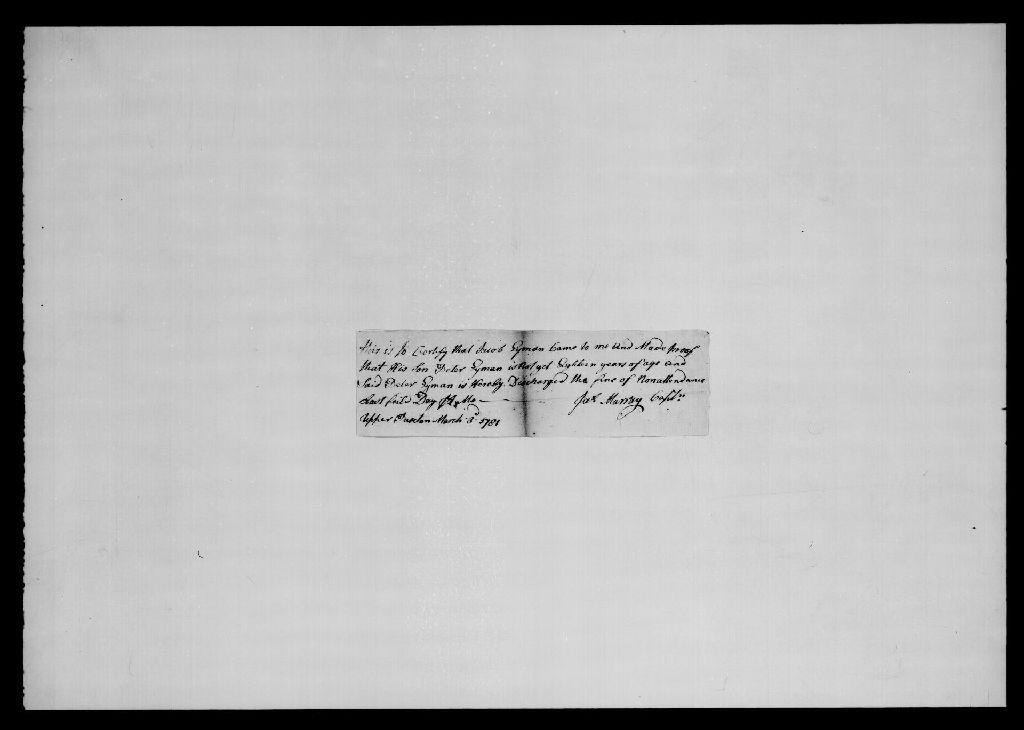 This is to Certify that Jacob Eyman Came to me And Made proof
that His Son Peter Eyman is Not yet Eighteen years of age and
Said Peter Eyman is Hereby Discharged the fine of Nonattendance
Last feild Day
Jas. Murray Captn
Upper Paxton March 3d 1781